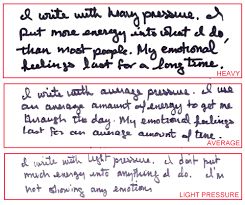 I write with heavy pressure. I
put more energy into what I do,
than most people. My emotional
feelings last for a long time.
HEAVY
I write with average pressure. I use
an average amount of energy to get me
through the day. My emotional feelings
last for an average amount of time.
AVERAGE
I write with light pressure. I don't put
much energy into anything I do. I'm
not showing any emotion.
LIGHT PRESSURE